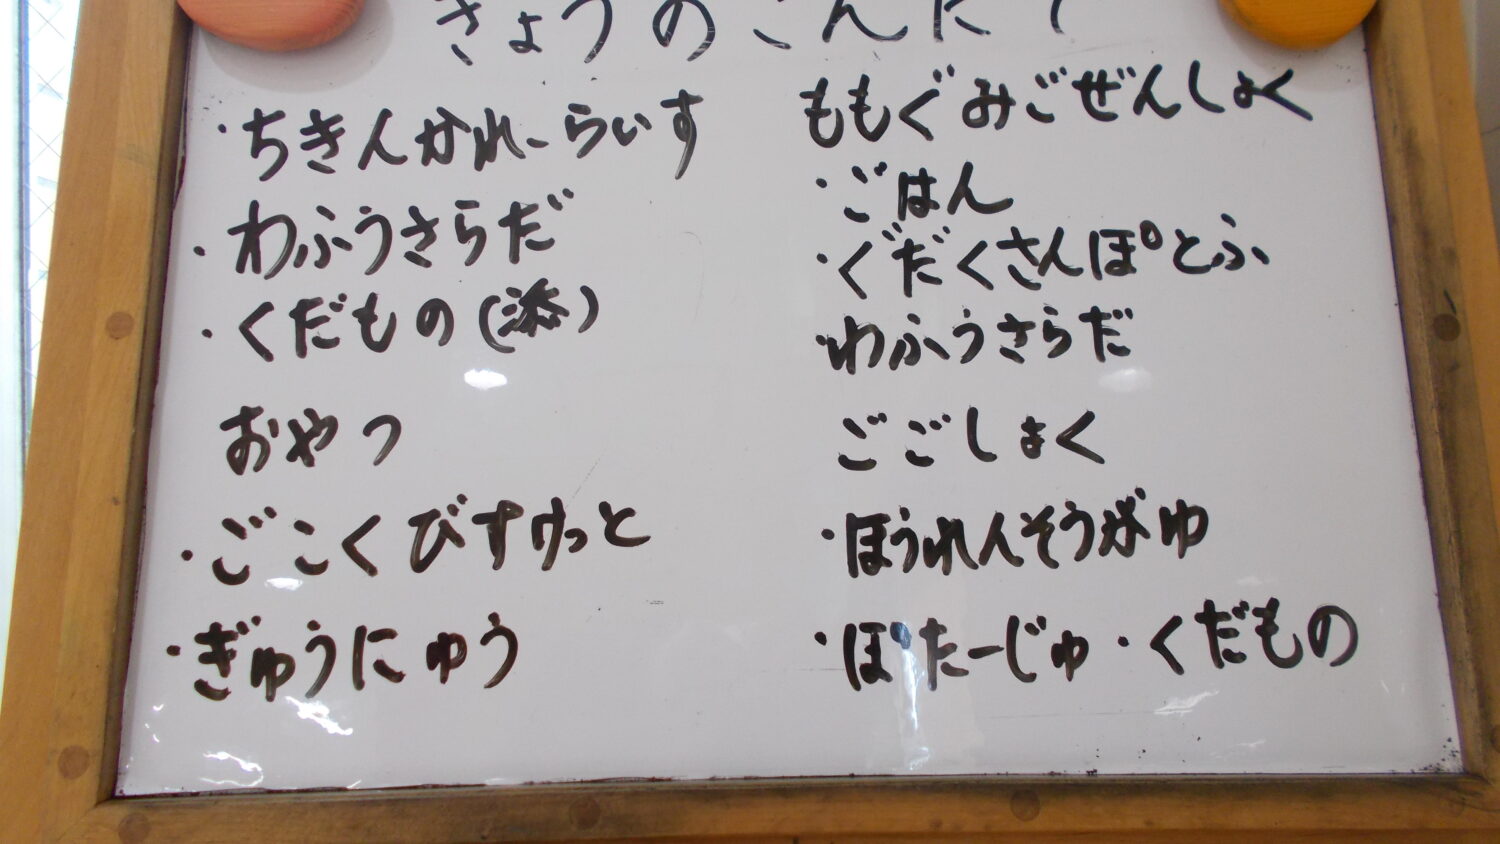 きょうのこんだて
・ちきんかれーらいす
・わふうさらだ
・くだもの(添)
おやつ
・ごこくびすけっと
・ぎゅうにゅう
ももぐみごぜんしょく
・ごはん
・ぐだくさんぽとふ
・わふうさらだ
ごごしょく
・ほうれんそうがゆ
・ぽたーじゅ・くだもの